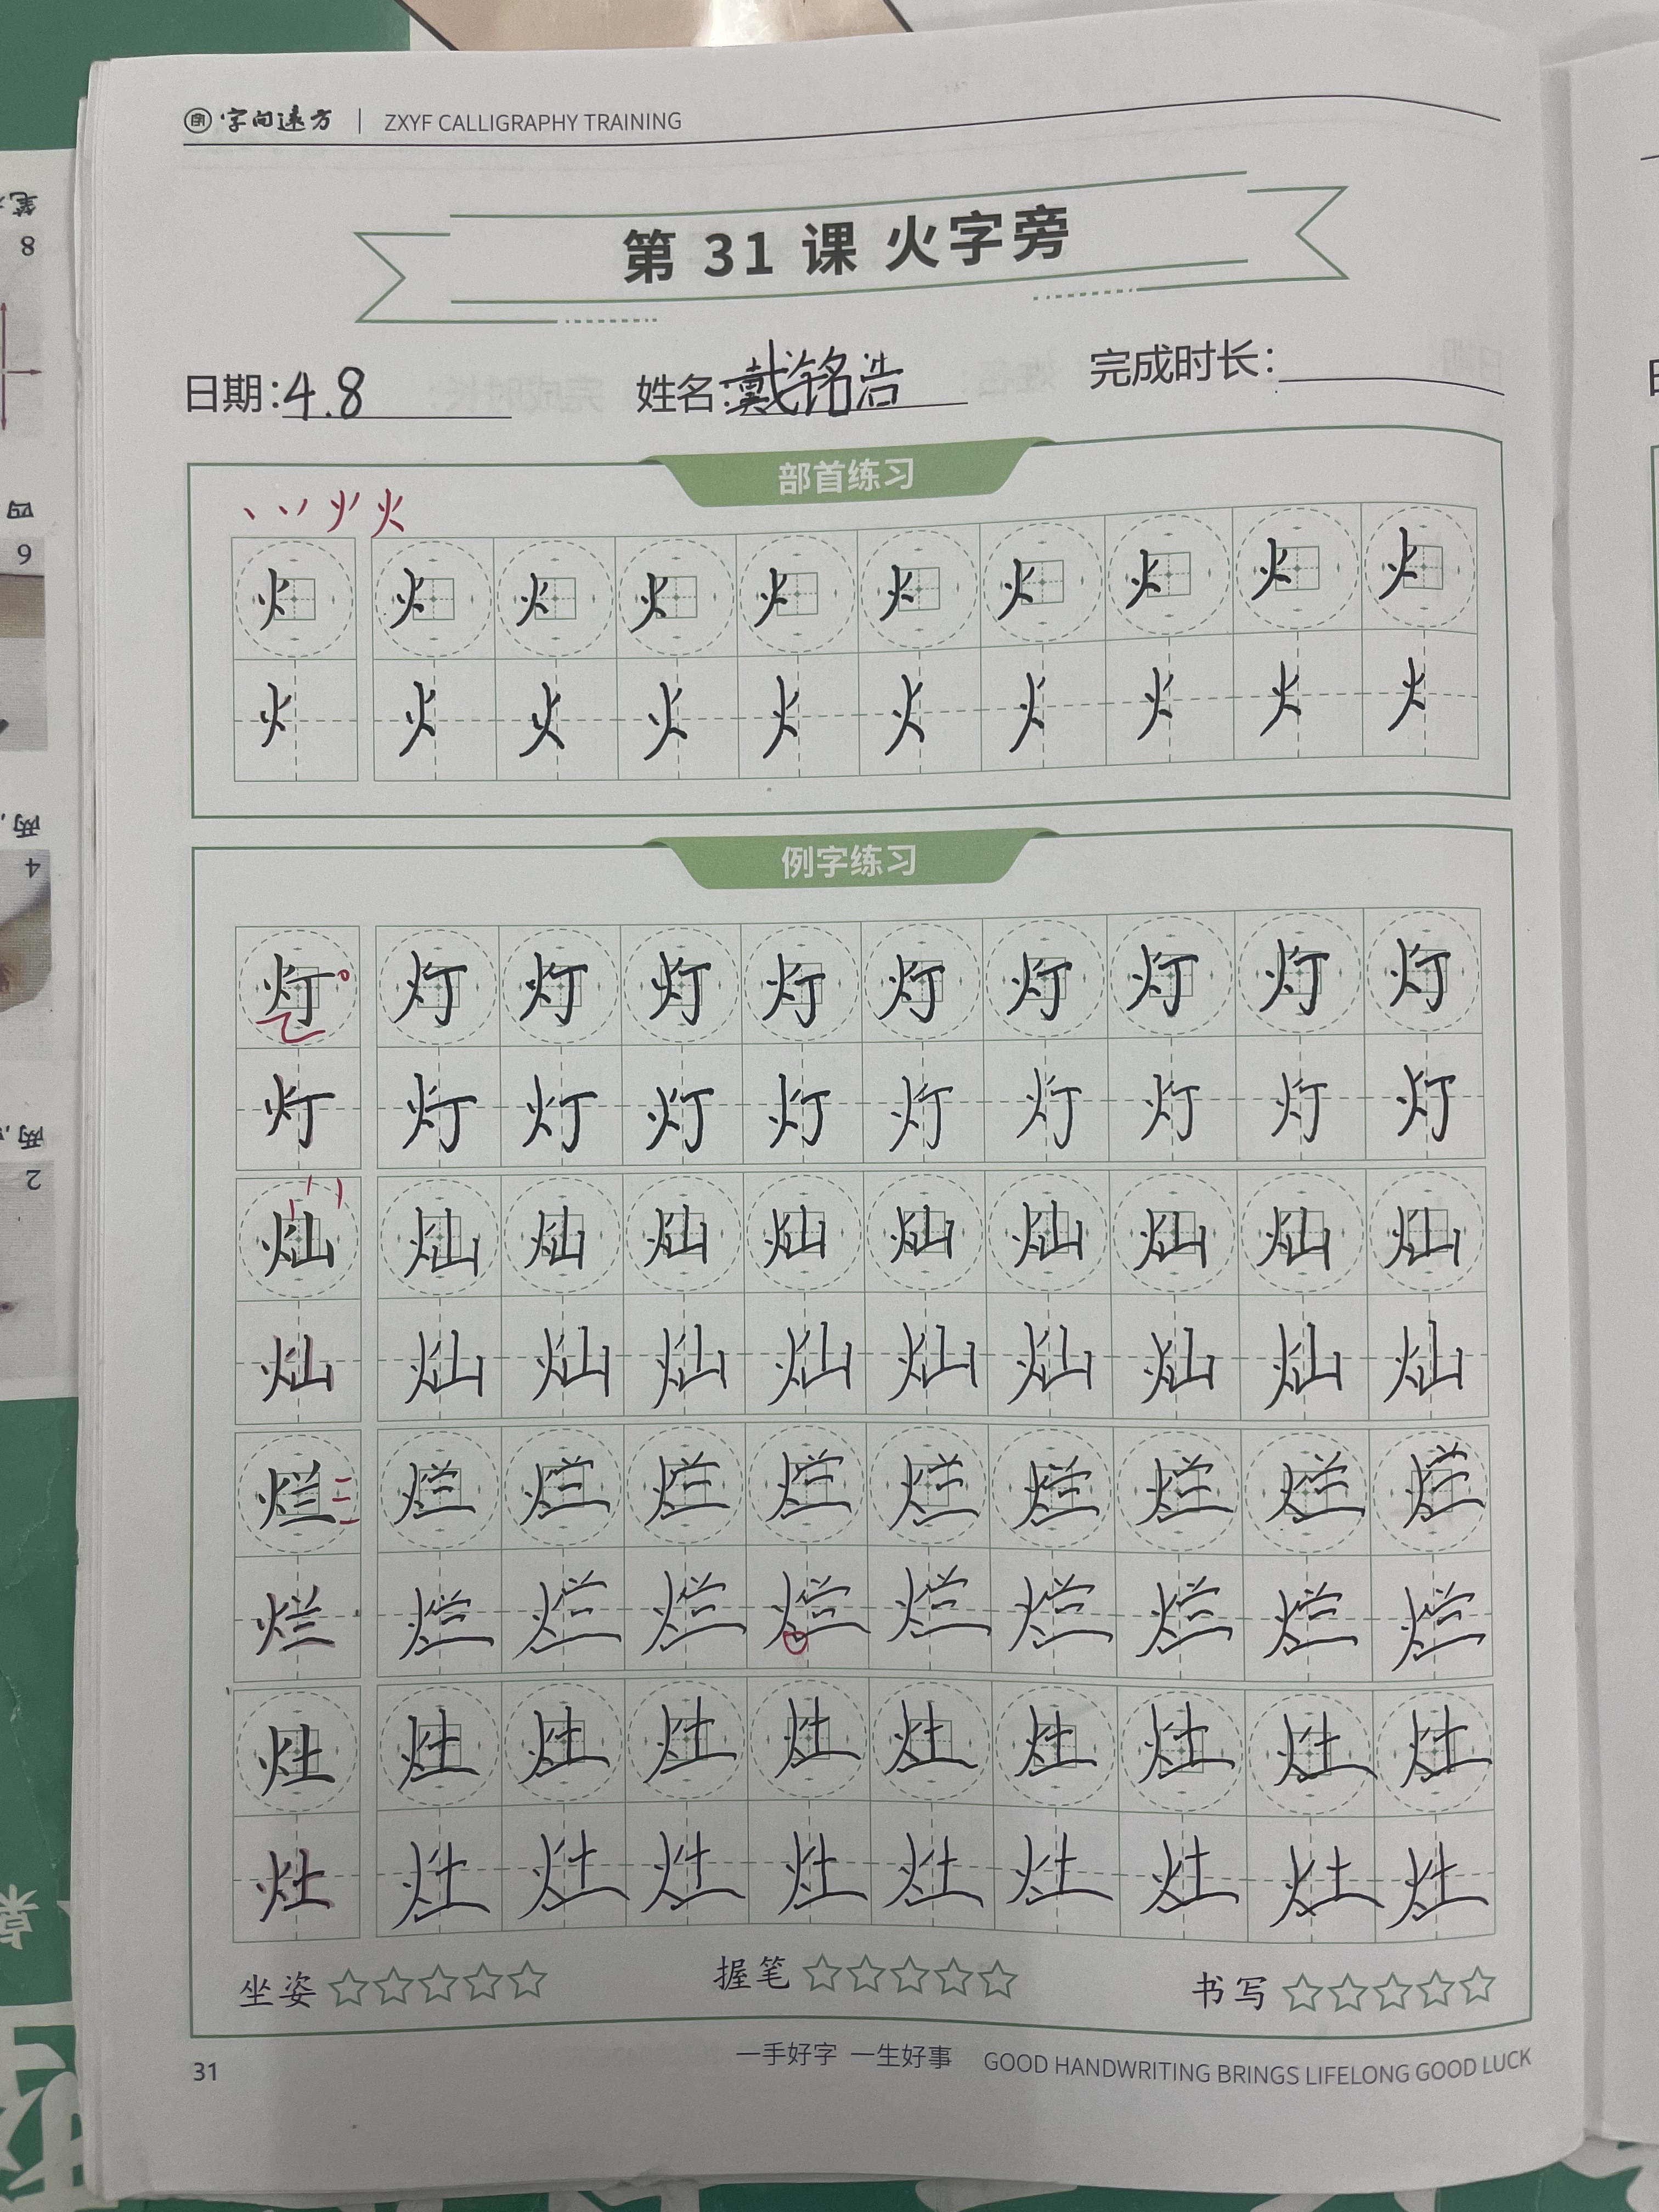 字向远方 | ZXYF CALLIGRAPHY TRAINING
第 31 课 火字旁
日期:4.8 姓名:戴铭浩 完成时长:
部首练习
丶 丷 火
火 火 火 火 火 火 火 火 火 火
火 火 火 火 火 火 火 火 火 火
例字练习
灯 灯 灯 灯 灯 灯 灯 灯 灯 灯
灯 灯 灯 灯 灯 灯 灯 灯 灯 灯
灿 灿 灿 灿 灿 灿 灿 灿 灿 灿
灿 灿 灿 灿 灿 灿 灿 灿 灿 灿
烂 烂 烂 烂 烂 烂 烂 烂 烂 烂
烂 烂 烂 烂 烂 烂 烂 烂 烂 烂
灶 灶 灶 灶 灶 灶 灶 灶 灶 灶
灶 灶 灶 灶 灶 灶 灶 灶 灶 灶
坐姿 ☆☆☆☆☆ 握笔 ☆☆☆☆☆ 书写 ☆☆☆☆☆
31 一手好字 一生好事 GOOD HANDWRITING BRINGS LIFELONG GOOD LUCK
笔
8
四
6
两,
4
两,
2